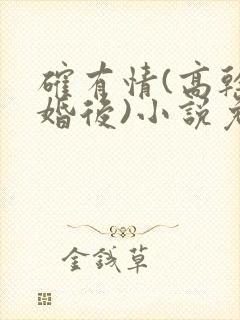 確有情(高幹
婚後)小說
金錢草